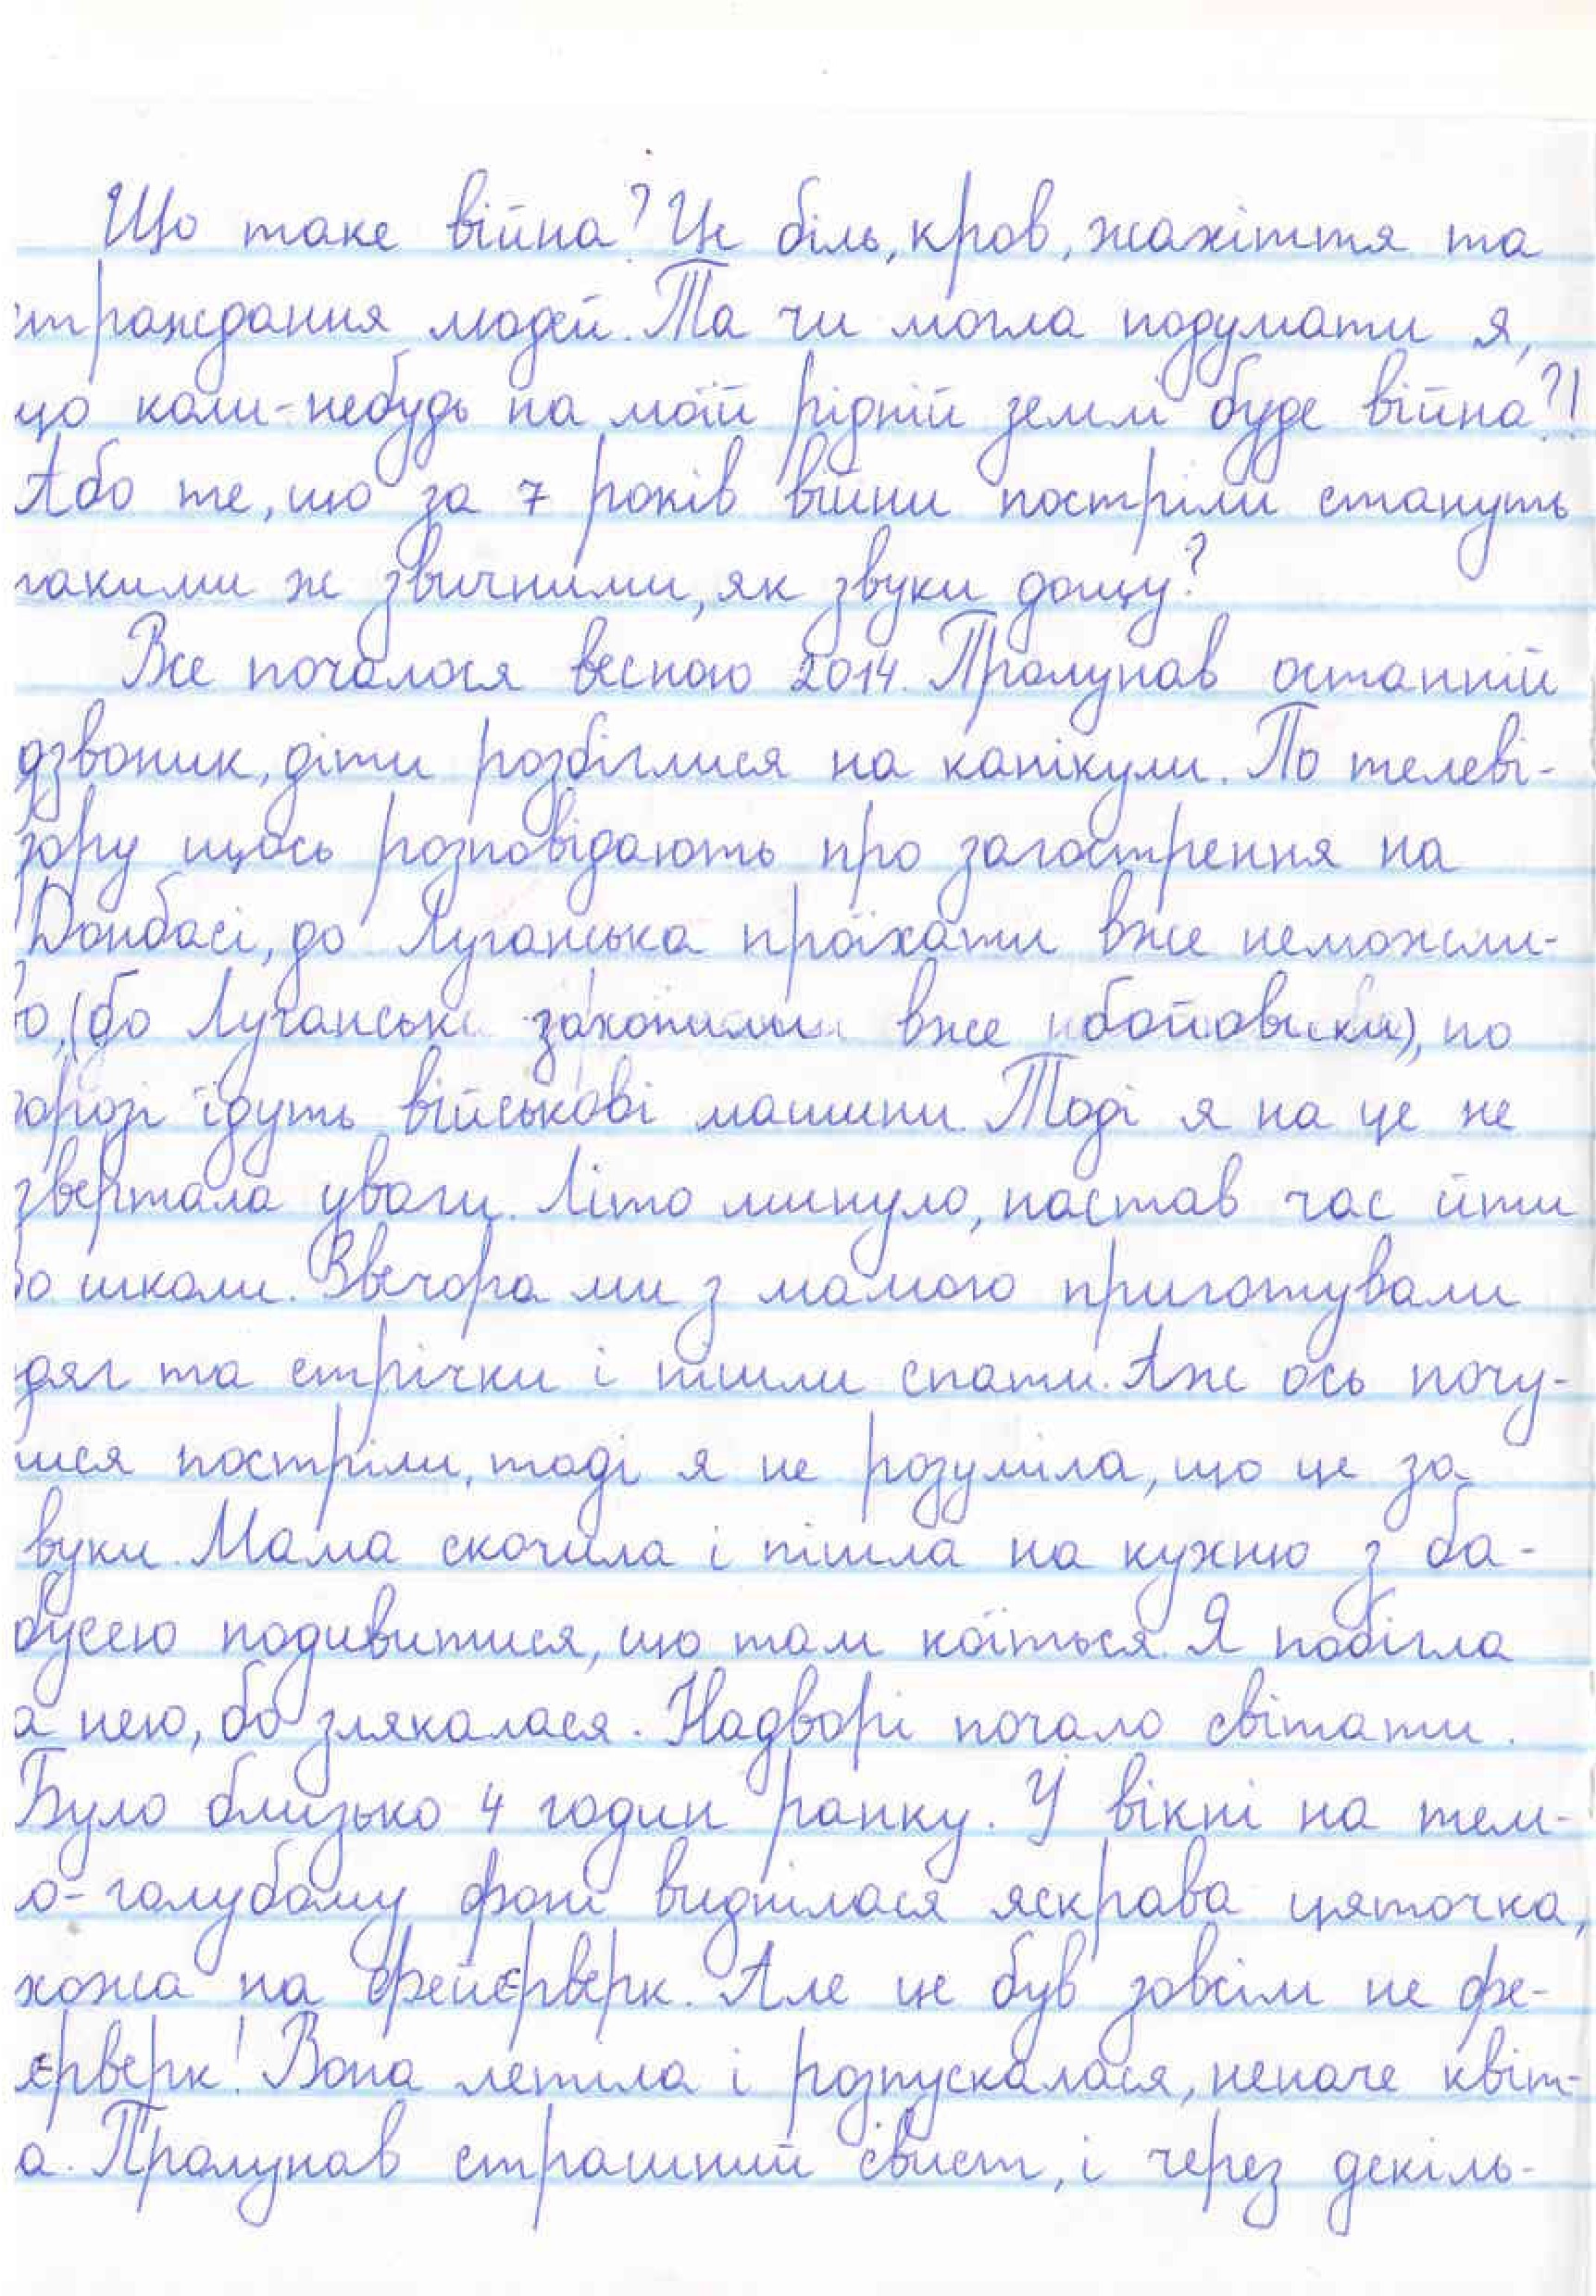 Що таке війна? Це біль, кров, жахіття та
страждання людей. Та чи могла подумати я,
що коли-небудь на моїй рідній землі буде війна?!
Або те, що за 7 років війни постріли стануть
такими ж звичними, як звуки дощу?
Все почалося весною 2014. Пролунав останній
дзвоник, діти розбіглися на канікули. По телеві-
зору щось розповідають про загострення на
Донбасі, до Луганська проїхати вже неможли-
о, (бо Луганськ захопили вже бойовики), по
орозі їдуть військові машини. Тоді я на це не
звертала уваги. Літо минуло, настав час йти
до школи. Ввечора ми з мамою приготували
дяг та стрічки і пішли спати. Аж ось почу-
лися постріли, тоді я не розуміла, що це за
вуки. Мама скочила і пішла на кухню з ба-
бусею подивитися, що там коїться. Я побігла
а нею, бо злякалася. Надворі почало світати.
Було близько 4 годин ранку. У вікні на тем-
о-голубому фоні виднілася яскрава цяточка,
хожа на фейєрверк. Але це був зовсім не фе-
єрверк! Вона летіла і розпускалася, неначе квіт-
а. Пролунав страшний свист, і через декіль-